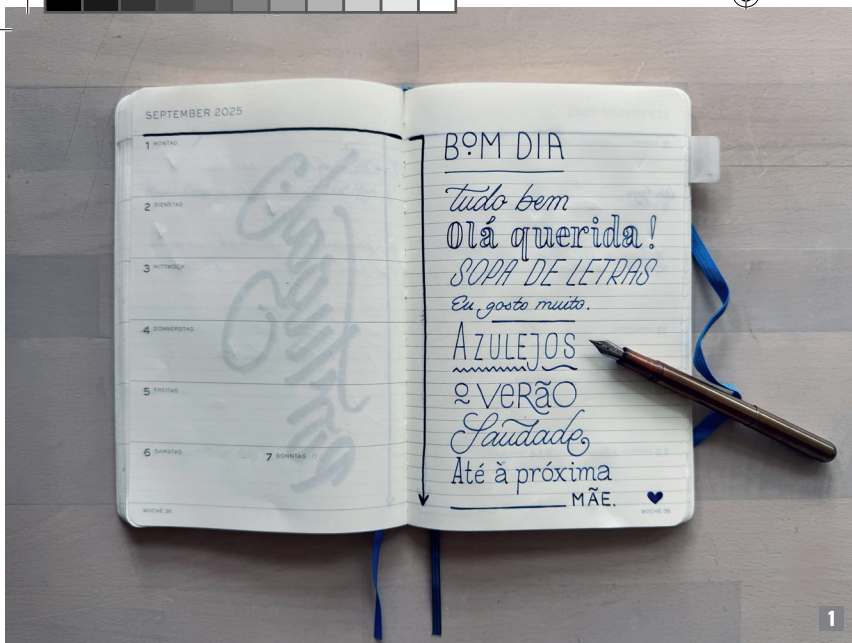 SEPTEMBER 2025
1 MONTAG
2 DIENSTAG
3 MITTWOCH
4 DONNERSTAG
5 FREITAG
6 SAMSTAG 7 SONNTAG
WOCHE 36
BOM DIA
tudo bem
Olá querida!
SOPA DE LETRAS
Eu gosto muito.
AZULEJOS
o VERÃO
Saudade
Até à próxima
MÃE.
WOCHE 36
1